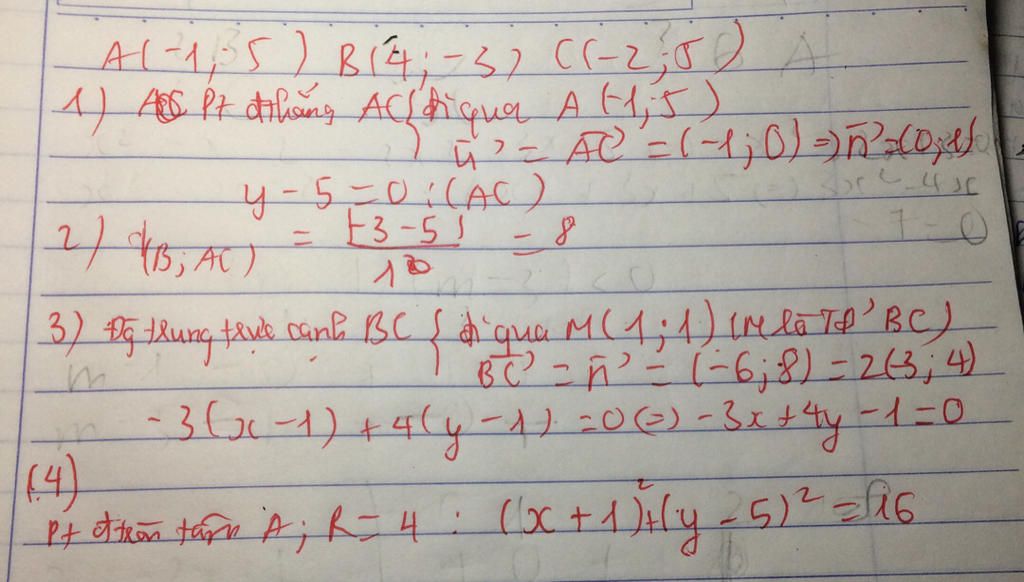 A(-1; 5) B(4; -3) C(-2; 5)
1) Pt đt thẳng AC { đi qua A (-1; 5)
u⃗ = AC⃗ = (-1; 0) => n⃗ = (0; 1)
y - 5 = 0 : (AC)
2) d(B; AC) = |-3 - 5| / 1 = 8
3) Đg trung trực cạnh BC { đi qua M (1; 1) (M là TĐ BC)
BC⃗ = n⃗ = (-6; 8) = 2(-3; 4)
-3(x - 1) + 4(y - 1) = 0 (=) -3x + 4y - 1 = 0
(4)
Pt đtròn tâm A; R = 4 : (x + 1)² + (y - 5)² = 16